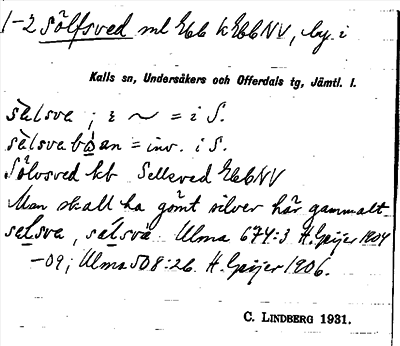 1-2 Sölfsved ml Ebb k EbbNV, by. i
Kalls sn, Undersåkers och Offerdals tg, Jämtl. l.
sälsva ; i ~ = i S.
sälsvaboan = inv. i S.
Sölvsved kb Sellsved EbbNV
Man skall ha gömt silver här gammalt
salsva, sälsva Ulma 674:3 H. Geijer 1904
-09; Ulma 508:26. H. Geijer 1906.
C. LINDBERG 1931.